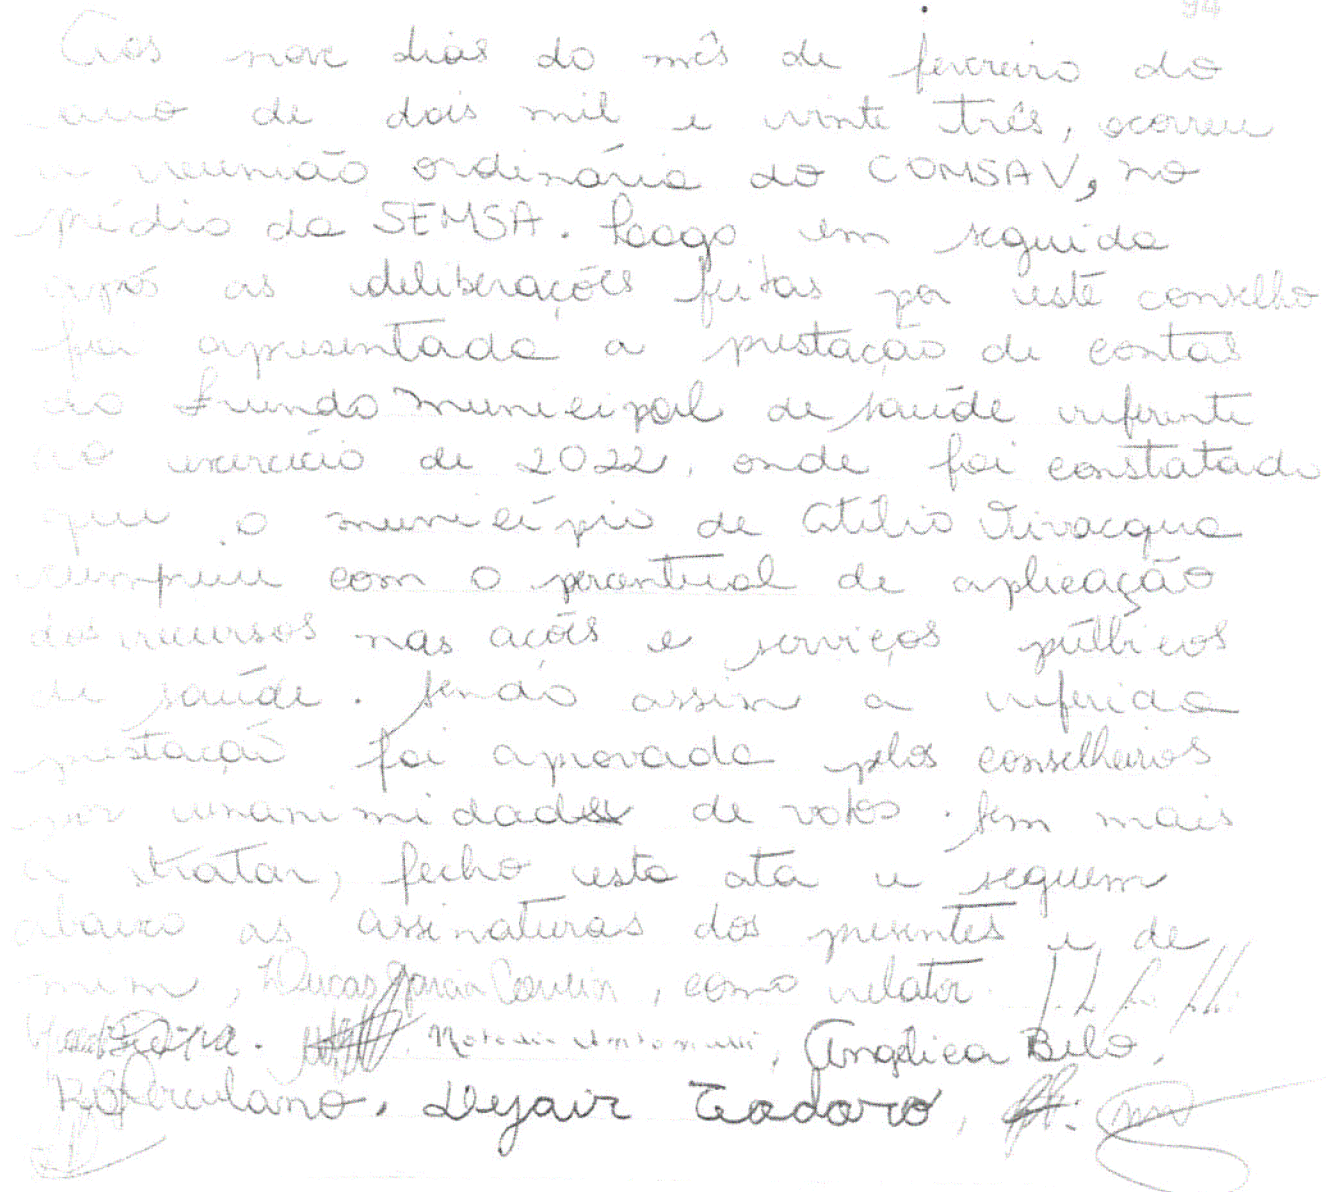 94
Aos nove dias do mês de fevereiro do
ano de dois mil e vinte três, ocorreu
a reunião ordinária do COMSAV, no
prédio da SEMSA. Logo em seguida
após as deliberações feitas por este conselho
foi apresentada a prestação de contas
do Fundo Municipal de saúde referente
ao exercício de 2022, onde foi constatado
que o município de Atílio Vivacqua
cumpriu com o percentual de aplicação
dos recursos nas ações e serviços públicos
de saúde. Sendo assim a referida
prestação foi aprovada pelos conselheiros
por unanimidade de votos. Sem mais
a tratar, fecho esta ata e seguem
abaixo as assinaturas dos presentes e de
mim, Lucas, como relator.
Angélica Belo,
Herculano, Dejair Teodoro,